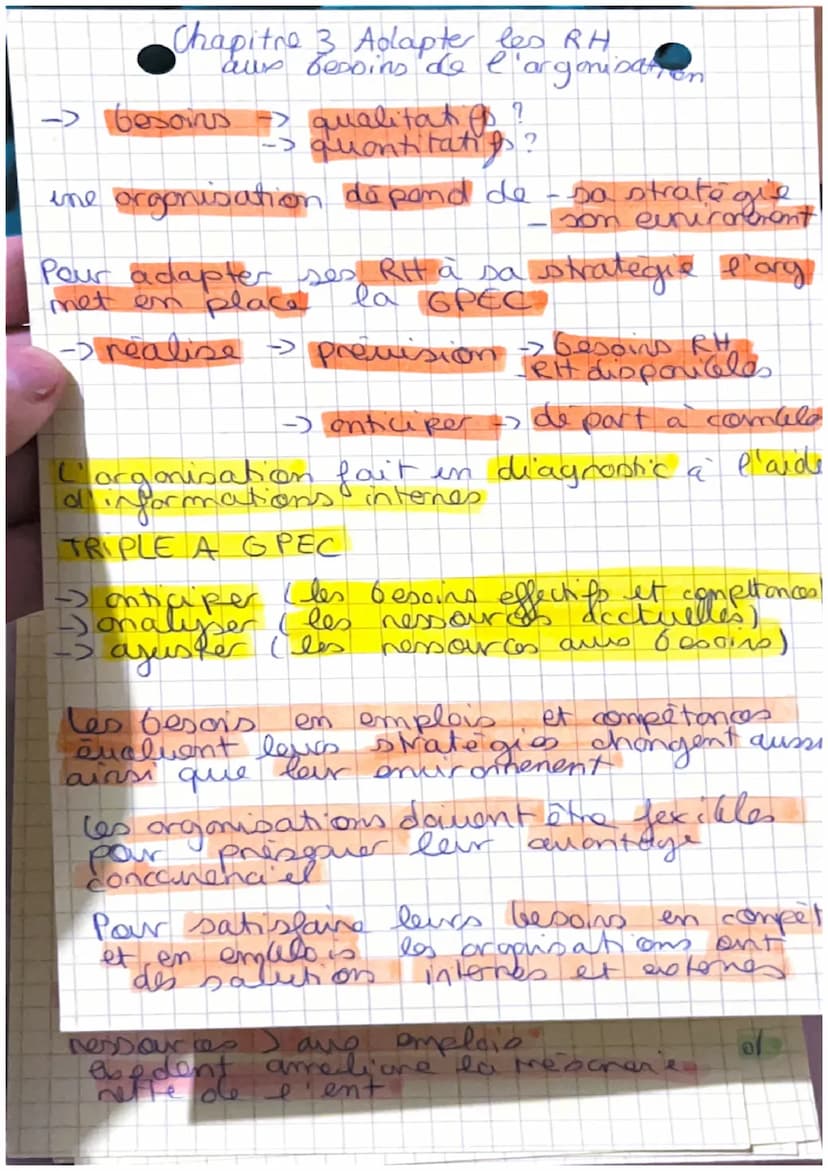 Chapitre 3 Adapter les RH
aux besoins de l'organisation
-> besoins -> qualitatifs ?
-> quantitatifs ?
une organisation dépend de - sa stratégie
- son environnement
Pour adapter ses RH à sa stratégie l'arg
met en place la GPEC
-> réalise -> prévision -> besoins RH
- RH disponibles
-> anticiper -> départ à combler
L'organisation fait un diagnostic à l'aide
d'informations internes
TRIPLE A GPEC
-> anticiper (les besoins effectifs et compétences)
-> analyser (les ressources actuelles)
-> ajuster (les ressources aux besoins)
Les besois en emplois et compétances
évoluent leurs stratégies changent aussi
ainsi que leur environnement
Les organisations doivent être flexibles
pour leur avantage
concurrenciel
Pour satisfaire leurs besoins en compét
et en emplois les organisations ont
des solution internes et externes
ressources aux emplois
améliore la trésorerie
nette de l'ent